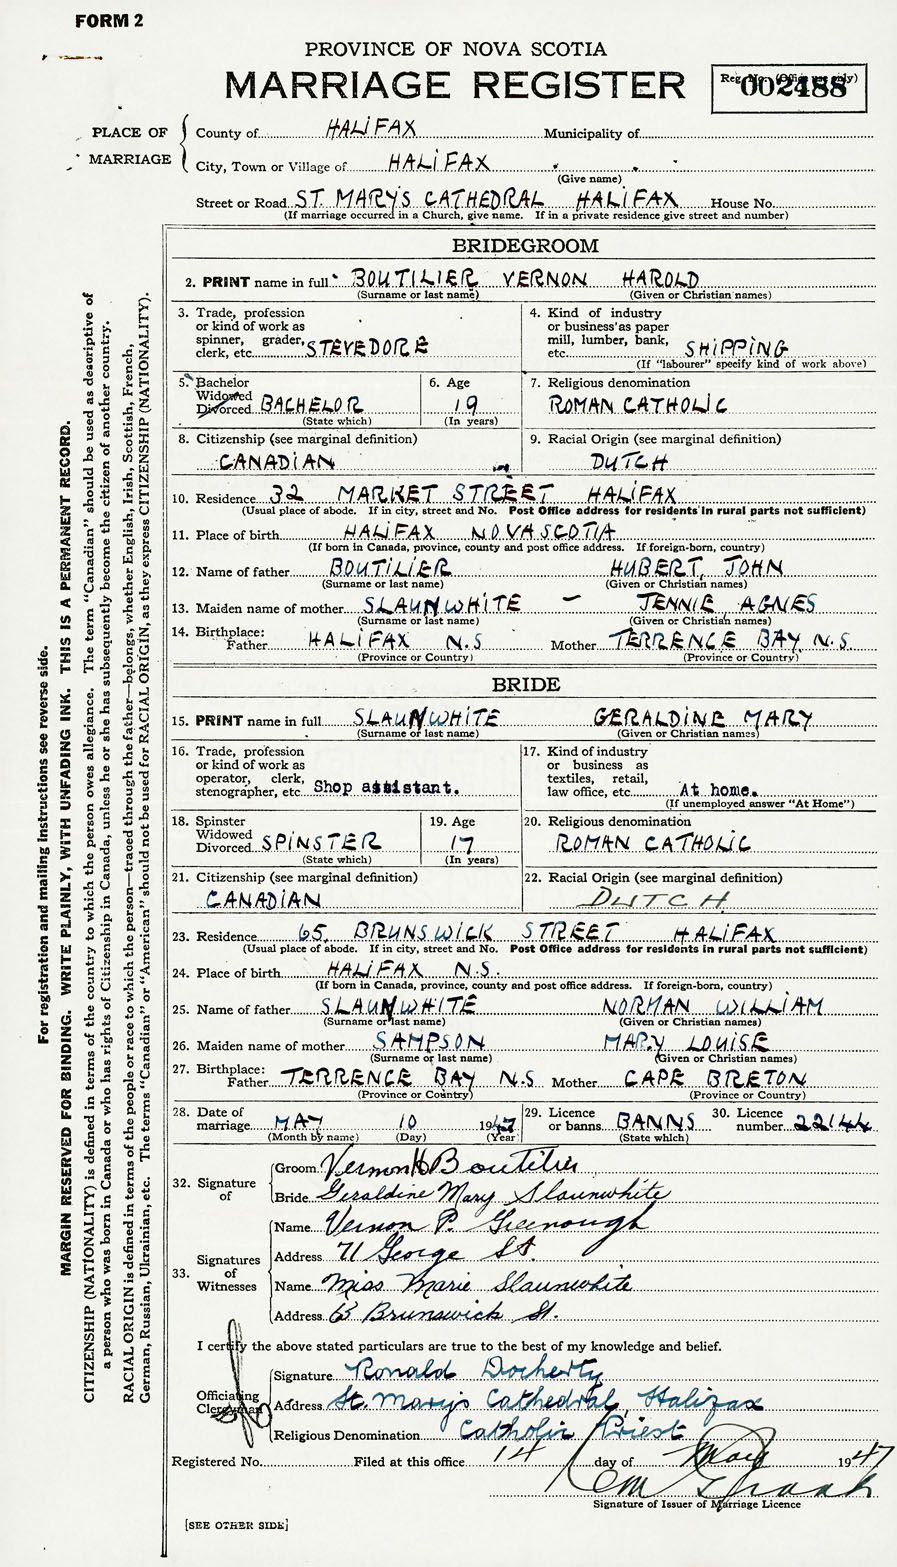 FORM 2
PROVINCE OF NOVA SCOTIA
MARRIAGE REGISTER
Reg. No. (Office use only)
002488
PLACE OF MARRIAGE
County of HALIFAX Municipality of
City, Town or Village of HALIFAX
(Give name)
Street or Road ST. MARY'S CATHEDRAL HALIFAX House No.
(If marriage occurred in a Church, give name. If in a private residence give street and number)
BRIDEGROOM
2. PRINT name in full BOUTILIER VERNON HAROLD
(Surname or last name) (Given or Christian names)
3. Trade, profession or kind of work as spinner, grader, clerk, etc. STEVEDORE
4. Kind of industry or business as paper mill, lumber, bank, etc. SHIPPING
(If "labourer" specify kind of work above)
5. Bachelor Widowed Divorced BACHELOR
(State which)
6. Age 19
(In years)
7. Religious denomination
ROMAN CATHOLIC
8. Citizenship (see marginal definition)
CANADIAN
9. Racial Origin (see marginal definition)
DUTCH
10. Residence 32 MARKET STREET HALIFAX
(Usual place of abode. If in city, street and No. Post Office address for residents in rural parts not sufficient)
11. Place of birth HALIFAX NOVA SCOTIA
(If born in Canada, province, county and post office address. If foreign-born, country)
12. Name of father BOUTILIER HUBERT, JOHN
(Surname or last name) (Given or Christian names)
13. Maiden name of mother SLAUNWHITE – JENNIE AGNES
(Surname or last name) (Given or Christian names)
14. Birthplace: Father HALIFAX N.S Mother TERRENCE BAY N.S
(Province or Country) (Province or Country)
BRIDE
15. PRINT name in full SLAUNWHITE GERALDINE MARY
(Surname or last name) (Given or Christian names)
16. Trade, profession or kind of work as operator, clerk, stenographer, etc. Shop assistant.
17. Kind of industry or business as textiles, retail, law office, etc. At home.
(If unemployed answer "At Home")
18. Spinster Widowed Divorced SPINSTER
(State which)
19. Age 17
(In years)
20. Religious denomination
ROMAN CATHOLIC
21. Citizenship (see marginal definition)
CANADIAN
22. Racial Origin (see marginal definition)
DUTCH.
23. Residence 65, BRUNSWICK STREET HALIFAX
(Usual place of abode. If in city, street and No. Post Office address for residents in rural parts not sufficient)
24. Place of birth HALIFAX N.S.
(If born in Canada, province, county and post office address. If foreign-born, country)
25. Name of father SLAUNWHITE NORMAN WILLIAM
(Surname or last name) (Given or Christian names)
26. Maiden name of mother SAMPSON MARY LOUISE
(Surname or last name) (Given or Christian names)
27. Birthplace: Father TERRENCE BAY N.S Mother CAPE BRETON
(Province or Country) (Province or Country)
28. Date of marriage MAY 10 1947
(Month by name) (Day) (Year)
29. Licence or banns BANNS
(State which)
30. Licence number 22144
32. Signature of
Groom Vernon H Boutilier
Bride Geraldine Mary Slaunwhite
33. Signatures of Witnesses
Name Vernon P. Greenough
Address 71 George St.
Name Miss Marie Slaunwhite
Address 65 Brunswick St.
I certify the above stated particulars are true to the best of my knowledge and belief.
Officiating Clergyman
Signature Ronald Docherty
Address St. Mary's Cathedral, Halifax
Religious Denomination Catholic Priest
Registered No. Filed at this office 14 day of May 1947
Signature of Issuer of Marriage Licence
[SEE OTHER SIDE]
For registration and mailing instructions see reverse side.
MARGIN RESERVED FOR BINDING. WRITE PLAINLY, WITH UNFADING INK. THIS IS A PERMANENT RECORD.
CITIZENSHIP (NATIONALITY) is defined in terms of the country to which the person owes allegiance. The term "Canadian" should be used as descriptive of
a person who was born in Canada or who has rights of Citizenship in Canada, unless he or she has subsequently become the citizen of another country.
RACIAL ORIGIN is defined in terms of the people or race to which the person—traced through the father—belongs, whether English, Irish, Scottish, French,
German, Russian, Ukrainian, etc. The terms "Canadian" or "American" should not be used for RACIAL ORIGIN, as they express CITIZENSHIP (NATIONALITY).